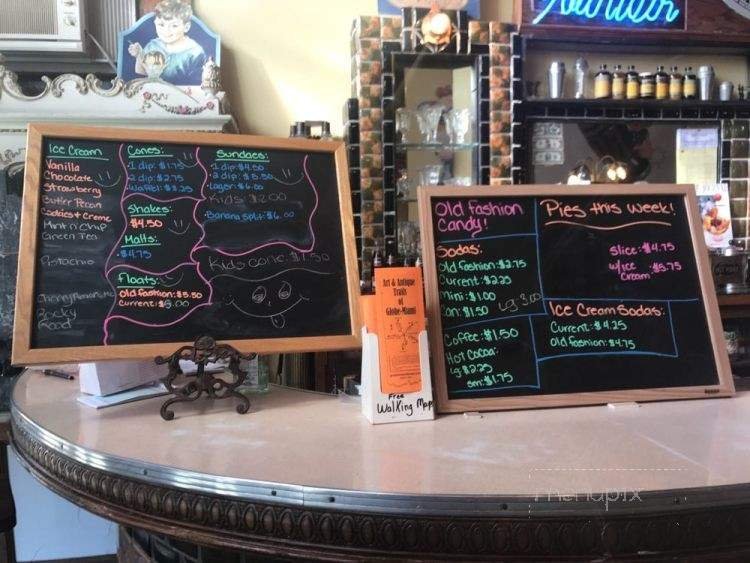 Fountain
Ice Cream
Vanilla
Chocolate
Strawberry
Butter Pecan
Cookies & Creme
Mint n Chip
Green Tea
Pistachio
Rocky
Road
Cones:
1 dip: $1.75
2 dip: $2.75
Waffel: $3.25
Shakes:
$4.50
Malts:
$4.75
Floats:
Old fashion: $5.50
Current: $5.00
Sundaes:
1 dip: $4.50
2 dip: $5.50
Lager: $6.00
Kids $2.00
Banana Split: $6.00
Kids Cone: $1.50
Art & Antique
Trails
of
Globe-Miami
Free
Walking Map
Old Fashion
Candy!
Sodas:
Old fashion: $2.75
Current: $2.25
Mini: $1.00
Can: $1.50 Lg 3.00
Coffee: $1.50
Hot Cocoa:
Lg $2.25
sm: $1.75
Pies this week!
Slice: $4.75
w/ice
Cream $5.75
Ice Cream Sodas:
Current: $4.25
Old fashion: $4.75
menupix